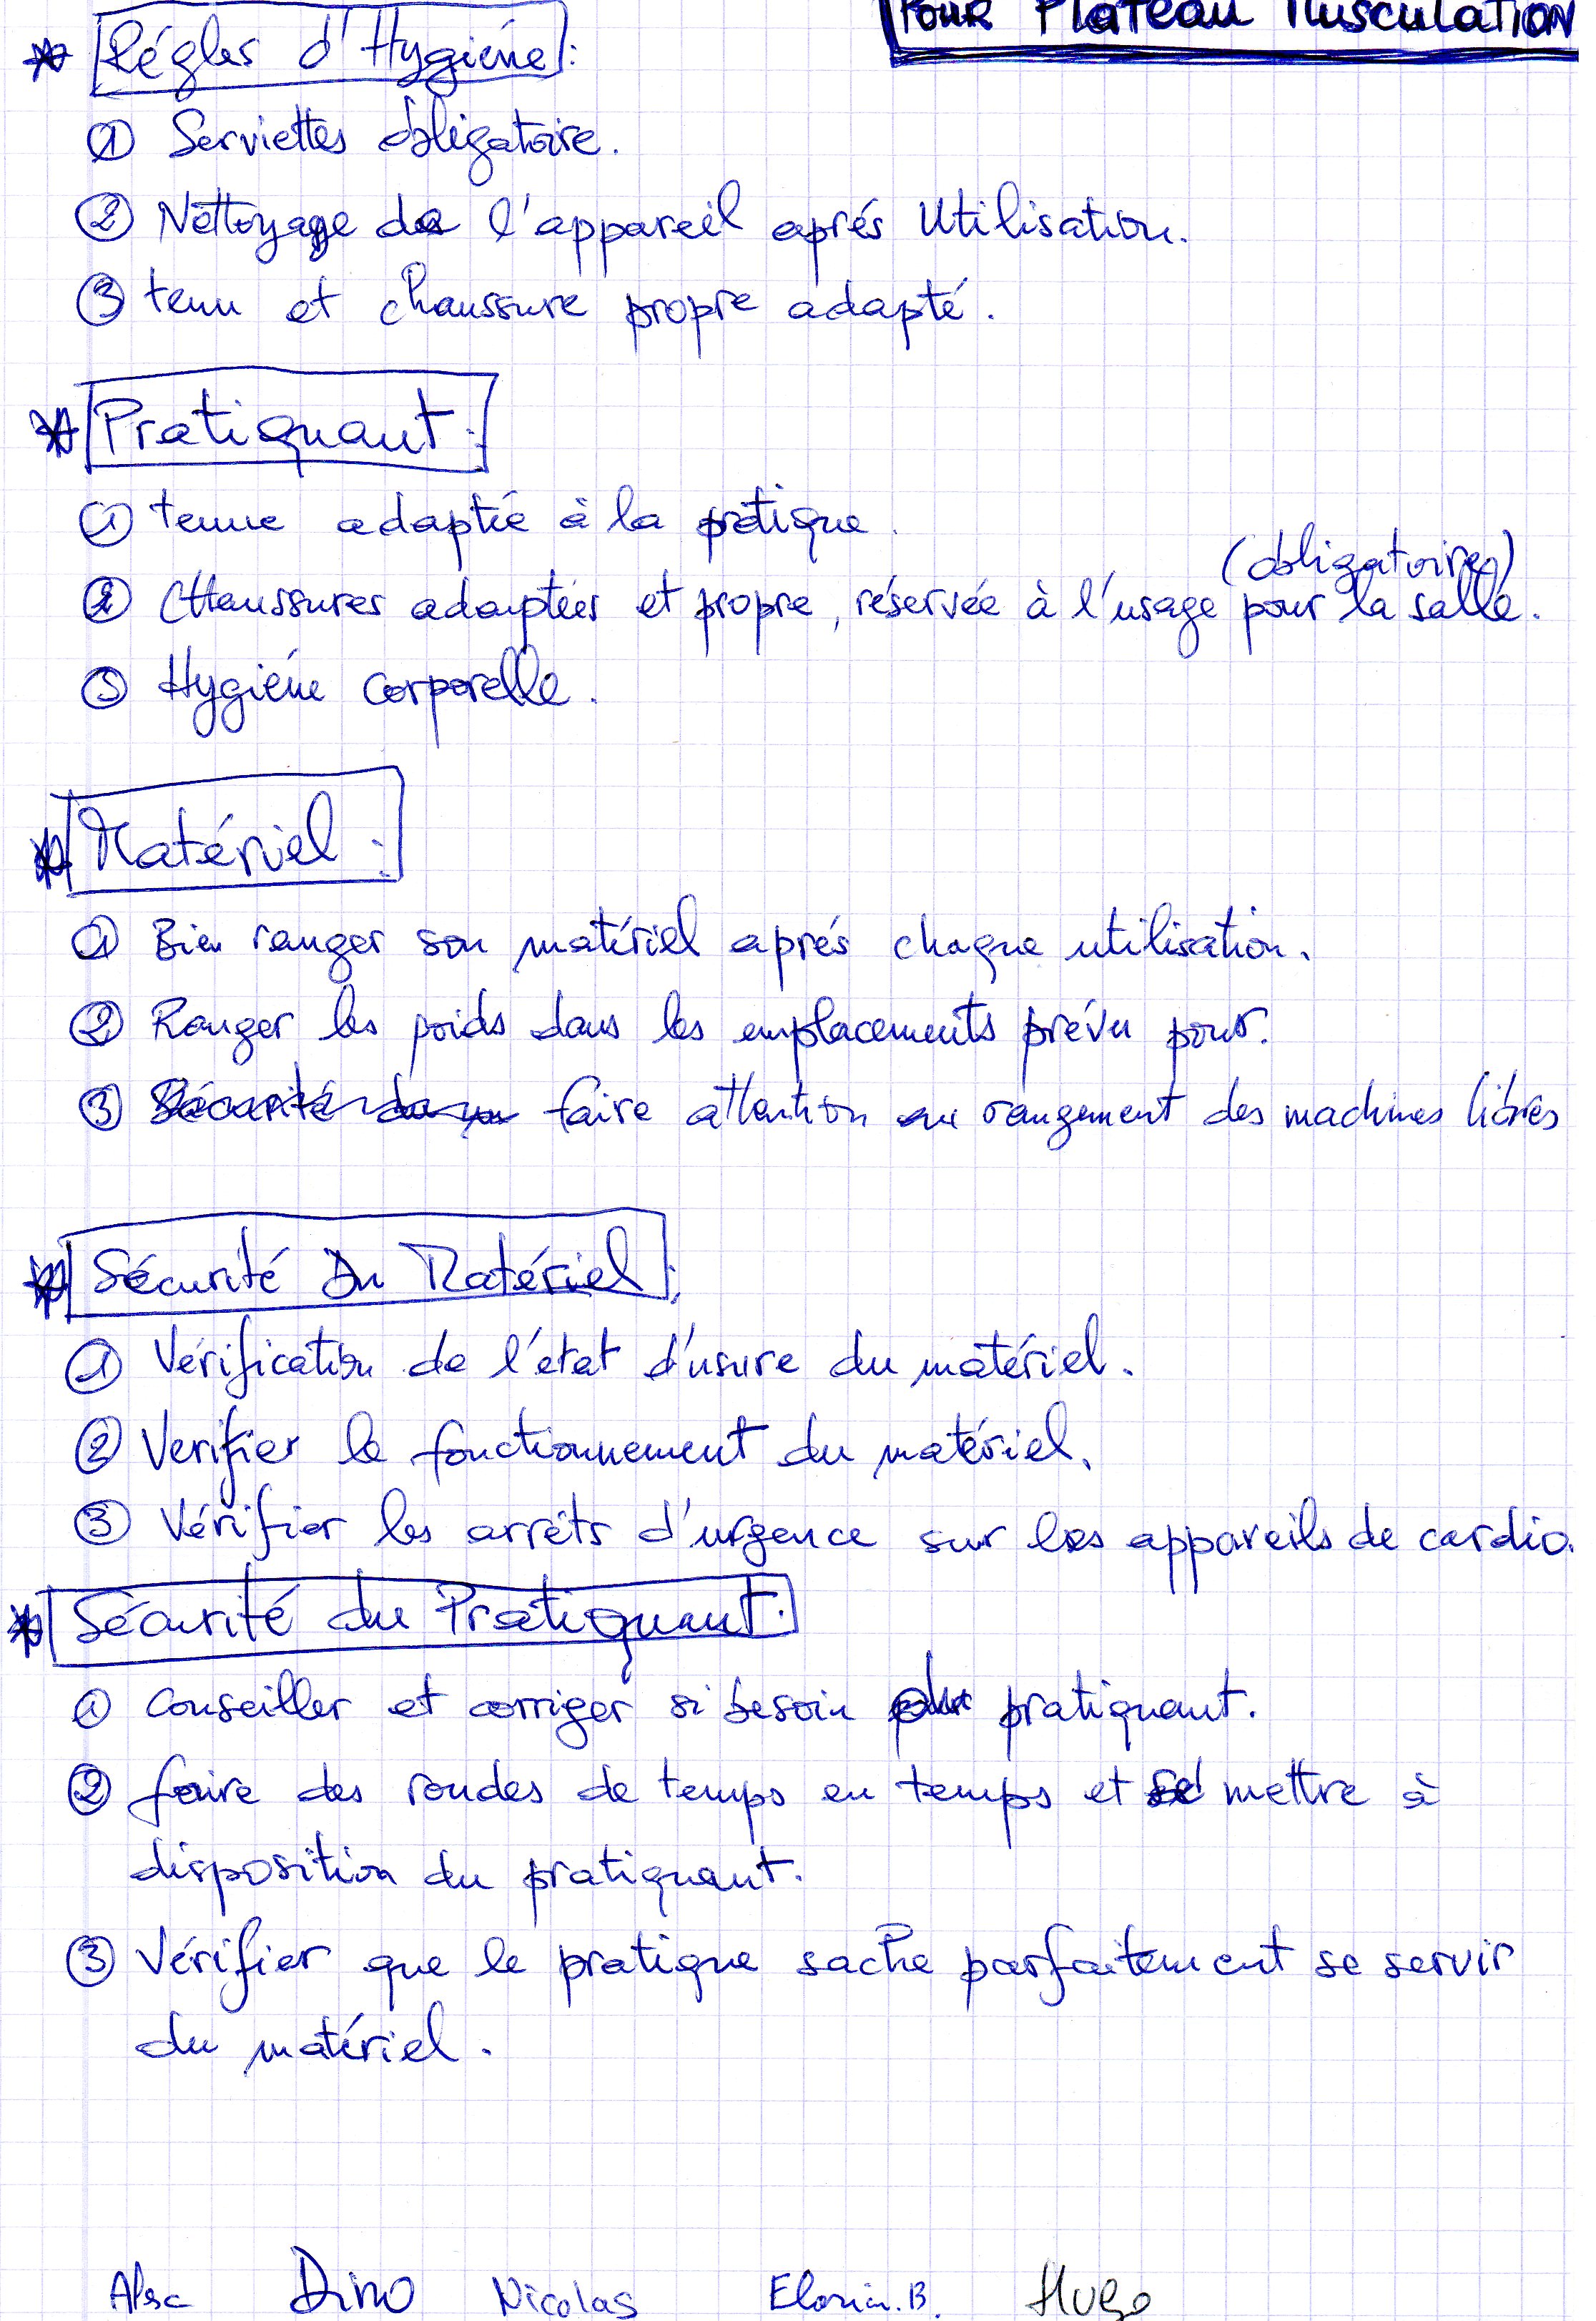 Pour Plateau Musculation
* Régles d'Hygiéne :
① Serviettes obligatoire.
② Nettoyage de l'appareil aprés Utilisation.
③ tenu et chaussure propre adapté.
* Pratiquant :
① tenue adaptée à la pratique.
(obligatoire)
② CHaussures adaptées et propre, réservée à l'usage pour la salle.
③ Hygiéne corporelle.
* Matériel :
① Bien ranger son matériel aprés chaque utilisation.
② Ranger les poids dans les emplacements prévu pour.
③ faire attention au rangement des machines libres
* Sécurité Du Matériel :
① Vérification de l'état d'usure du matériel.
② Verifier le fonctionnement du matériel.
③ Vérifier les arrêts d'urgence sur les appareils de cardio.
* Sécurité du Pratiquant :
① Conseiller et corriger si besoin pratiquant.
② faire des rondes de temps en temps et se mettre à
disposition du pratiquant.
③ Vérifier que le pratique sache parfaitement se servir
du matériel.
Dino Nicolas B. Hugo